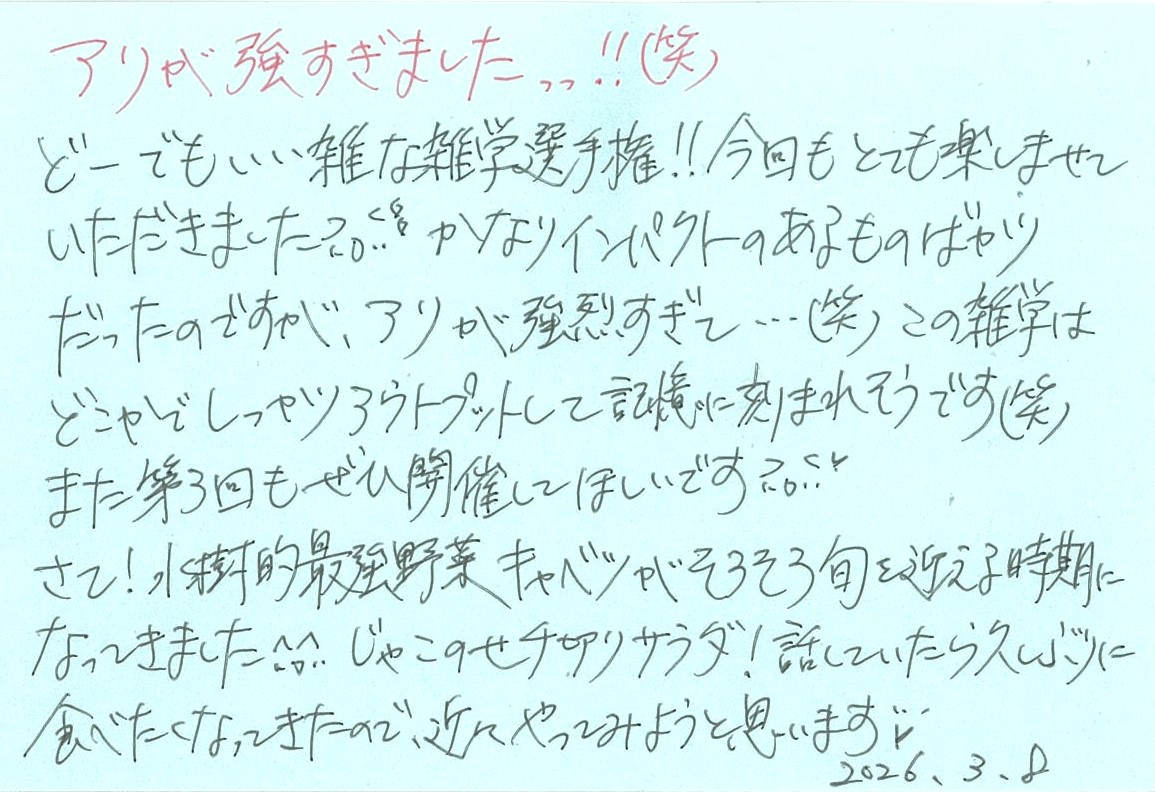 アリが強すぎました…!!(笑)
どーでもいい雑な雑学選手権!!今回もとても楽しませて
いただきました かなりインパクトのあるものばかり
だったのですが、アリが強烈すぎて…(笑)この雑学は
どこかでしっかりアウトプットして記憶に刻まれそうです(笑)
また第3回もぜひ開催してほしいです
さて!水樹的最強野菜キャベツがそろそろ旬を迎える時期に
なってきました^^ じゃこのせ千切りサラダ!話していたら久しぶりに
食べたくなってきたので、近々やってみようと思います
2026.3.8